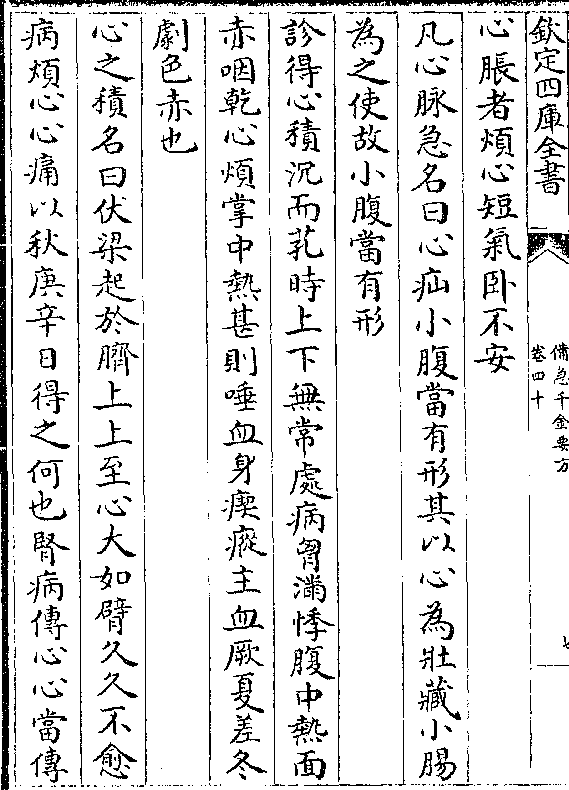 欽定四庫全書
備急千金要方
卷四十
七
心脹者煩心短氣卧不安
凡心脉急名曰心疝小腹當有形其以心為壯藏小腸
為之使故小腹當有形
診得心積沉而芤時上下無常處病胷滿悸腹中熱面
赤咽乾心煩掌中熱甚則唾血身瘈瘲主血厥夏差冬
劇色赤也
心之積名曰伏梁起於臍上上至心大如臂久久不愈
病煩心心痛以秋庚辛日得之何也腎病傳心心當傳